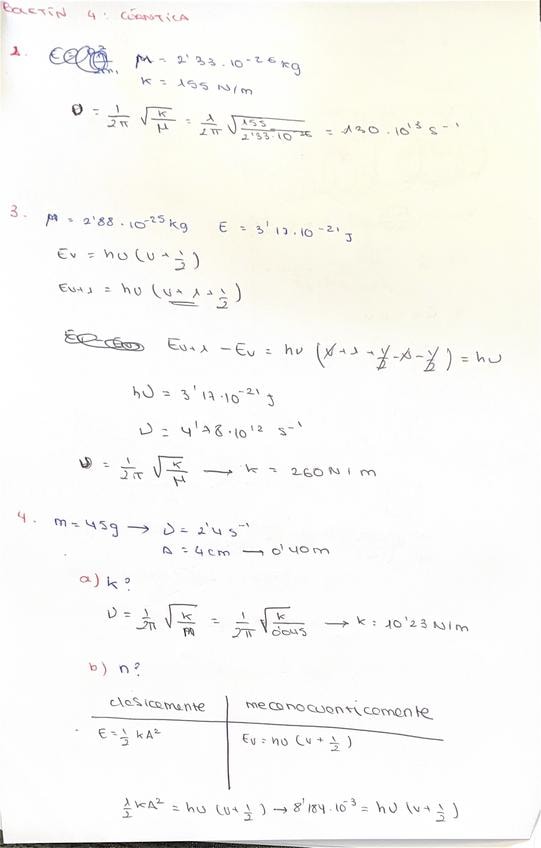 BOLETÍN 4: CUÁNTICA
2. μ = 2'33·10⁻²⁶ kg
k = 155 N/m
υ = 1/2π √(k/μ) = 1/2π √(155/2'33·10⁻²⁶) = 1'30·10¹³ s⁻¹
3. μ = 2'88·10⁻²⁵ kg E = 3'17·10⁻²¹ J
Ev = hυ (v + 1/2)
Ev+1 = hυ (v + 1 + 1/2)
Ev+1 - Ev = hυ (v + 1 + 1/2 - v - 1/2) = hυ
hυ = 3'17·10⁻²¹ J
υ = 4'78·10¹² s⁻¹
υ = 1/2π √(k/μ) → k = 260 N/m
4. m = 45g → υ = 2'4 s⁻¹
A = 4cm → 0'40m
a) k?
υ = 1/2π √(k/m) = 1/2π √(k/0'045) → k: 10'23 N/m
b) n?
clasicamente mecanocuanticamente
E = 1/2 kA² Ev = hυ (v + 1/2)
1/2 kA² = hυ (v + 1/2) → 8'184·10⁻³ = hυ (v + 1/2)